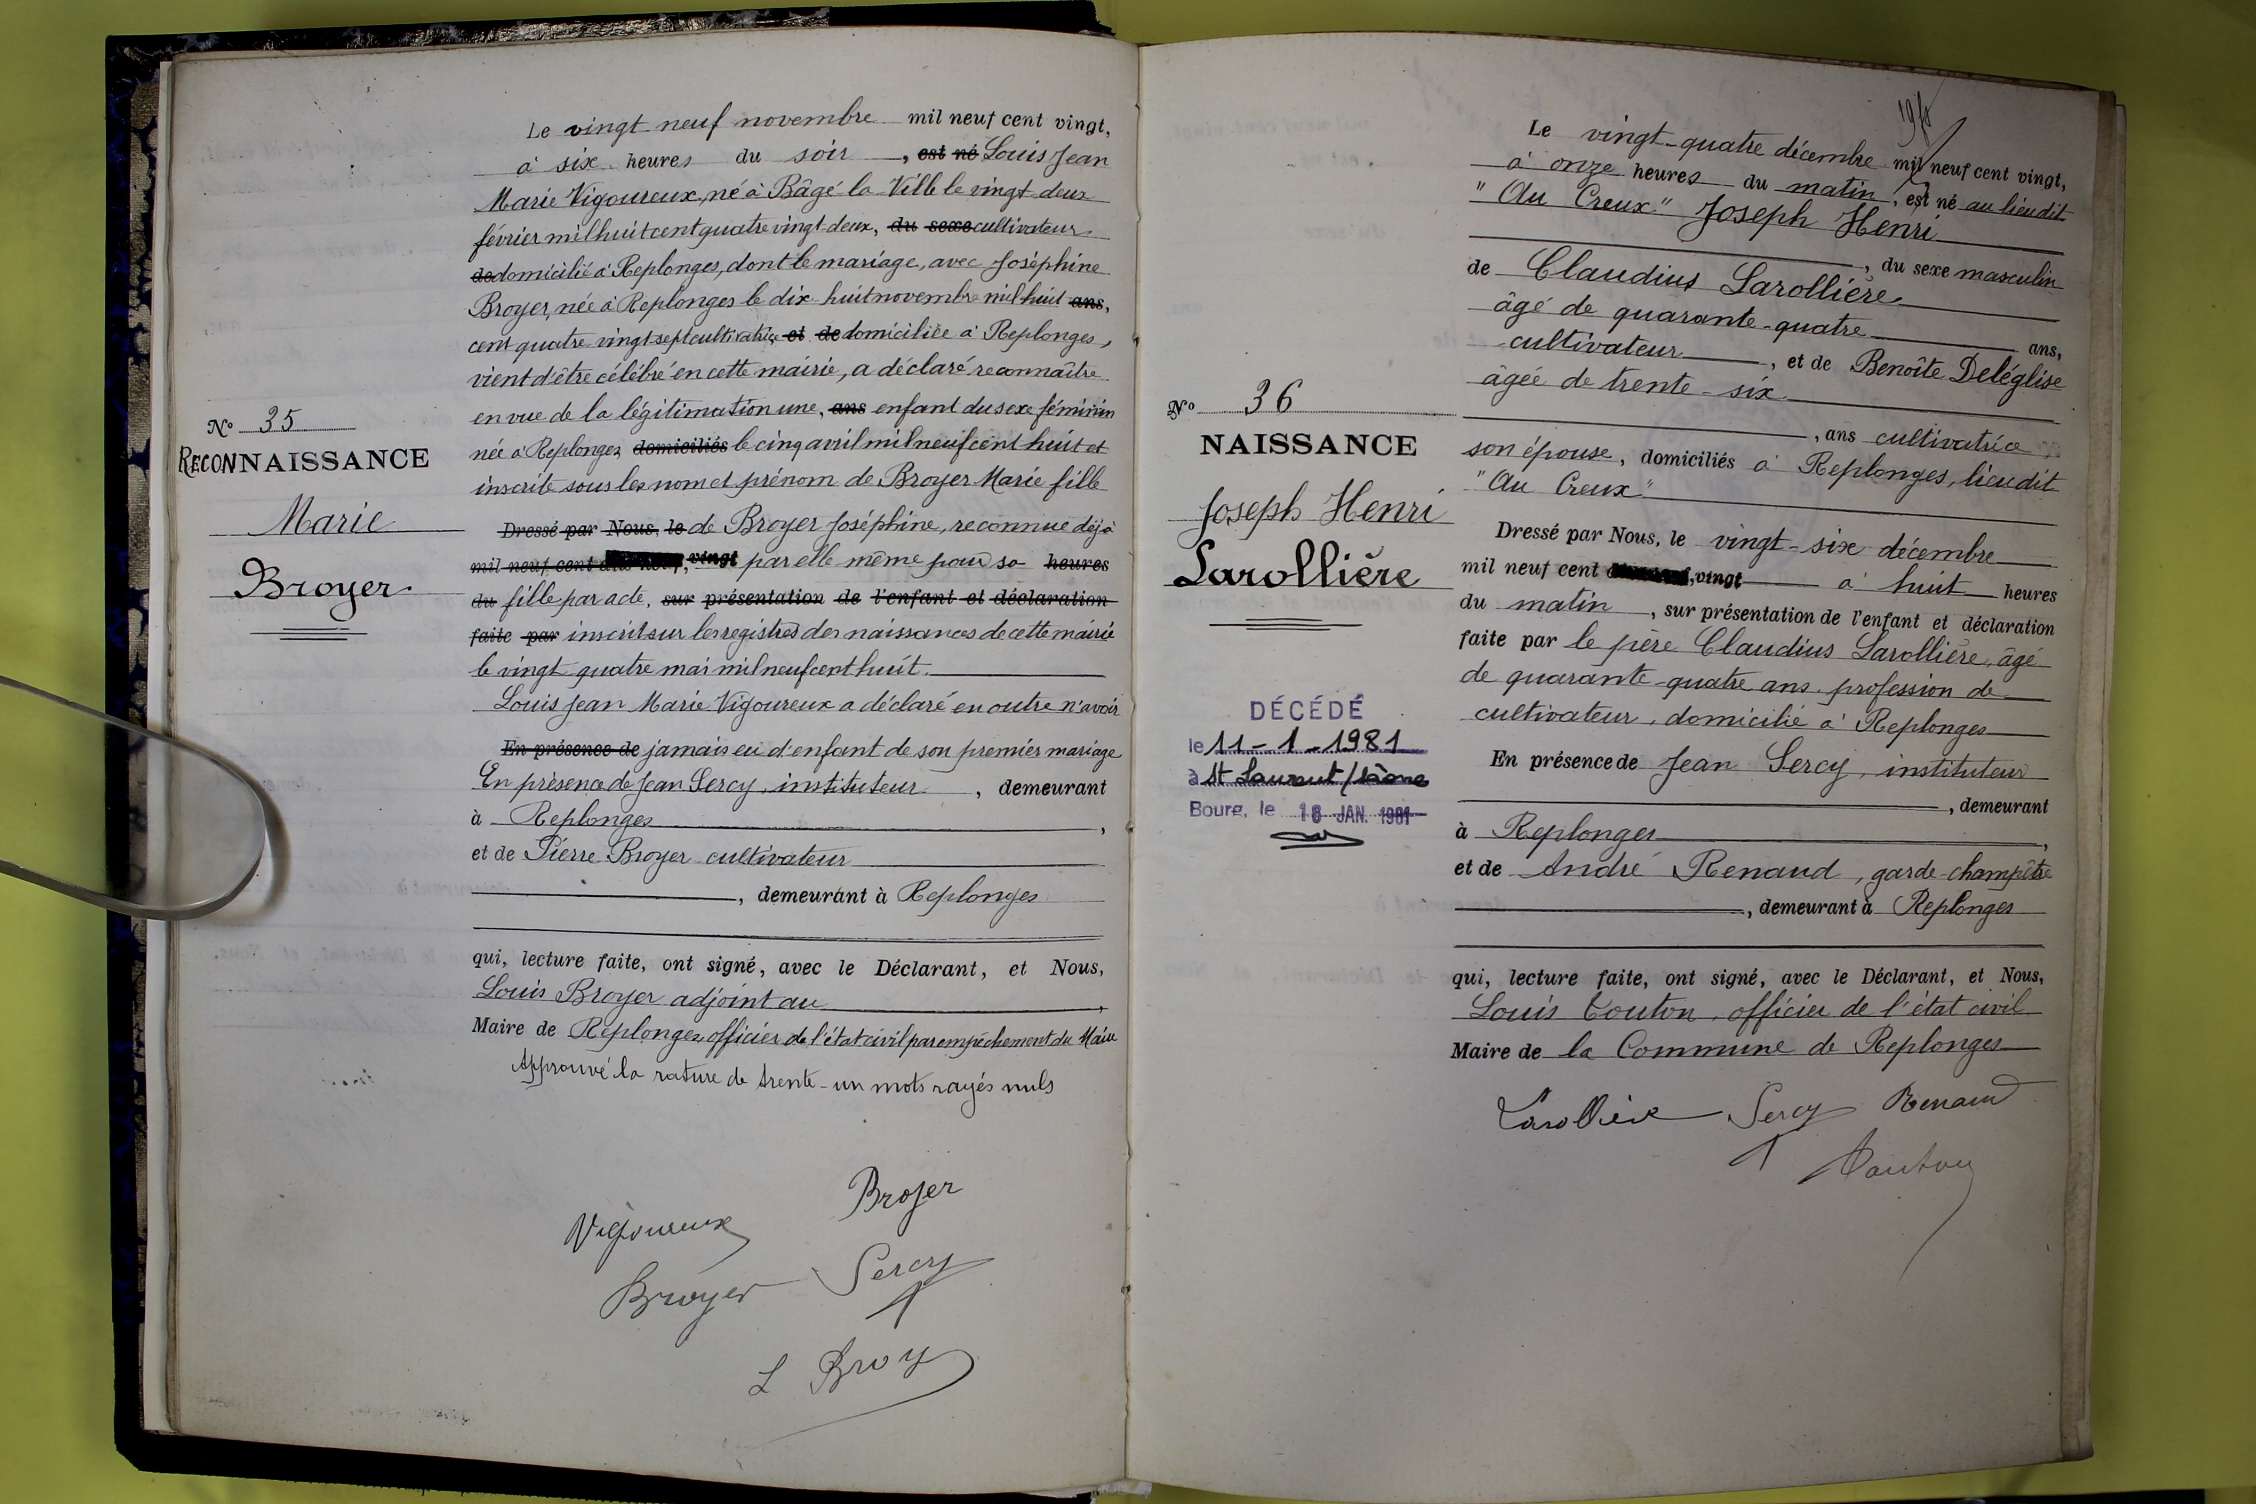 Le vingt neuf novembre mil neuf cent vingt,
à six heures du soir, est né Louis Jean
Marie Vigoureux, né à Bâgé la Ville le vingt deux
février mil huit cent quatre vingt deux, du sexe cultivateur
de domicilié à Replonges, dont le mariage, avec Joséphine
Broyer, née à Replonges le dix huit novembre mil huit ans,
cent quatre vingt sept cultivatrice et de domiciliée à Replonges,
vient d'être célébré en cette mairie, a déclaré reconnaître
en vue de la légitimation une, ans enfant du sexe féminin
née à Replonges domiciliés le cinq avril mil neuf cent huit et
inscrite sous les nom et prénom de Broyer Marie fille
Dressé par Nous, le de Broyer Joséphine, reconnue déjà
mil neuf cent vingt par elle même pour sa heures
du fille par acte, sur présentation de l'enfant et déclaration
faite par inscrit sur les registres des naissances de cette mairie
le vingt quatre mai mil neuf cent huit.
Louis Jean Marie Vigoureux a déclaré en outre n'avoir
En présence de jamais eu d'enfant de son premier mariage
En présence de Jean Sercy, instituteur, demeurant
à Replonges,
et de Pierre Broyer cultivateur
, demeurant à Replonges
qui, lecture faite, ont signé, avec le Déclarant, et Nous,
Louis Broyer adjoint au,
Maire de Replonges, officier de l'état civil par empêchement du Maire
Approuvé la rature de trente-un mots rayés nuls
No 35
RECONNAISSANCE
Marie
Broyer
Vigoureux Broyer
Broyer Sercy
L Broy
Le vingt-quatre décembre mil neuf cent vingt,
à onze heures du matin, est né au lieu dit
"Au Creux" Joseph Henri
, du sexe masculin
de Claudius Larollière
âgé de quarante-quatre ans,
cultivateur, et de Benoîte Deléglise
âgée de trente-six
, ans cultivatrice
son épouse, domiciliés à Replonges, lieu dit
"Au Creux"
Dressé par Nous, le vingt-six décembre
mil neuf cent, vingt à huit heures
du matin, sur présentation de l'enfant et déclaration
faite par le père Claudius Larollière, âgé
de quarante-quatre ans, profession de
cultivateur, domicilié à Replonges
En présence de Jean Sercy, instituteur
, demeurant
à Replonges,
et de André Renaud, garde-champêtre
, demeurant à Replonges
qui, lecture faite, ont signé, avec le Déclarant, et Nous,
Louis Touton, officier de l'état civil
Maire de la Commune de Replonges
Larollière Sercy Renaud
Touton
No 36
NAISSANCE
Joseph Henri
Larollière
DÉCÉDÉ
le 11-1-1981
à St Laurent/Saône
Bourg, le JAN. 1981